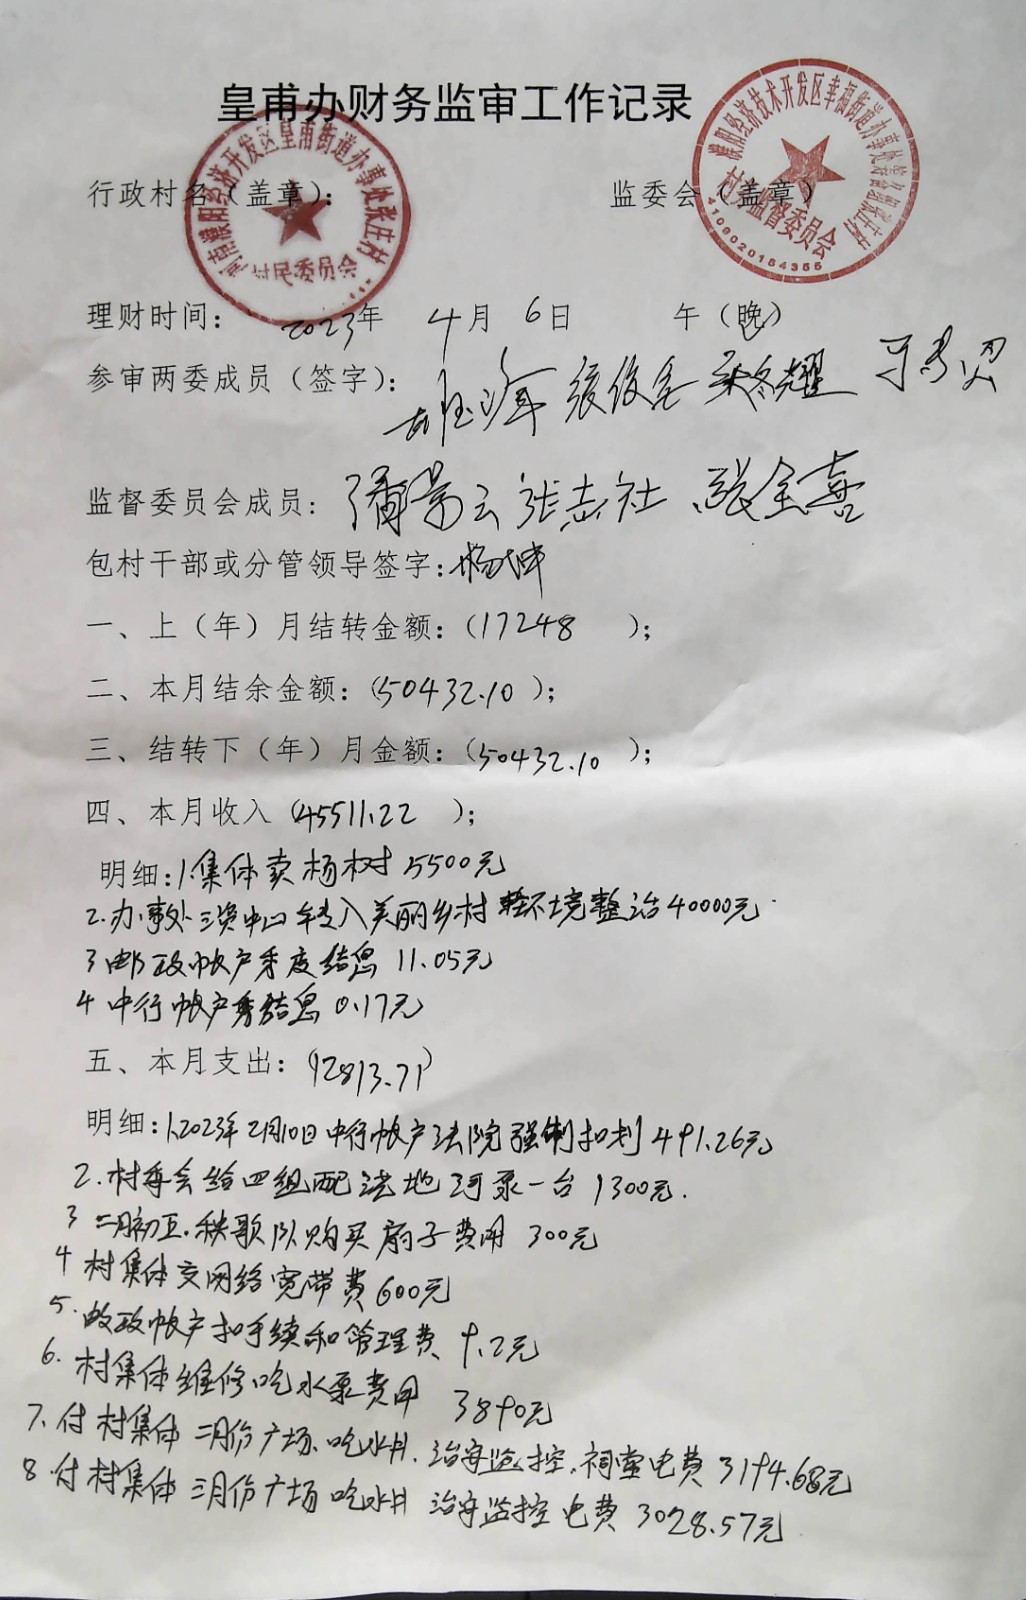 皇甫办财务监审工作记录
行政村名（盖章）：	监委会（盖章）
村民委员会
村务监督委员会
4109020154355
理财时间： 2023年 4月 6日 午（晚）
参审两委成员（签字）：
监督委员会成员： 张志社 张全喜
包村干部或分管领导签字：
一、上（年）月结转金额：（17248 ）；
二、本月结余金额：（50432.10 ）；
三、结转下（年）月金额：（50432.10 ）；
四、本月收入（45511.22 ）；
明细：1.集体卖杨树 5500元
2.办事处三资中心转入美丽乡村 环境整治40000元
3 邮政帐户季度结息 11.05元
4 中行帐户季结息 0.17元
五、本月支出：（12813.71）
明细：1.2023年2月10日中行帐户法院强制扣划 491.26元
2.村委会给四组配浇地河泵一台 1300元.
3 二月初五.秧歌队购买扇子费用 300元
4 村集体交网络宽带费 600元
5.邮政帐户扣手续和管理费 9.2元
6. 村集体维修吃水泵费用 3890元
7.付村集体 二月份广场.吃水井.治安监控.祠堂电费 3194.68元
8.付村集体 三月份广场 吃水井 治安监控 电费 3028.57元